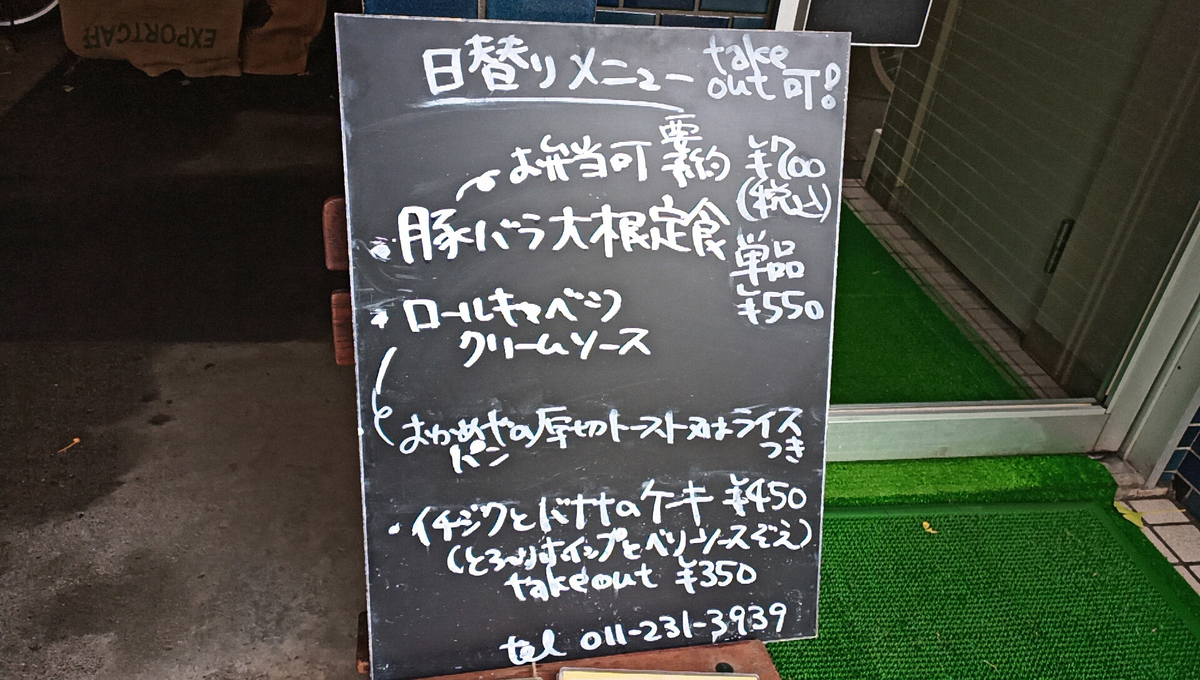 EXPORTCAFF
日替りメニュー take out可!
お弁当可 要予約 ¥700
(税込)
・豚バラ大根定食
単品
¥550
・ロールキャベツ
クリームソース
おかめやの厚切トースト又はライス
パン つき
・イチジクとバナナのケーキ ¥450
(とろ〜りホイップとベリーソースぞえ)
takeout ¥350
tel 011-231-3939